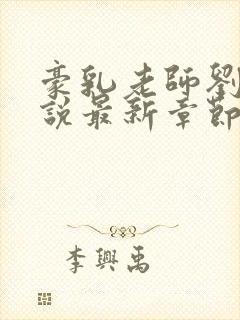 豪乳老師劉
說最新章節
李興禹